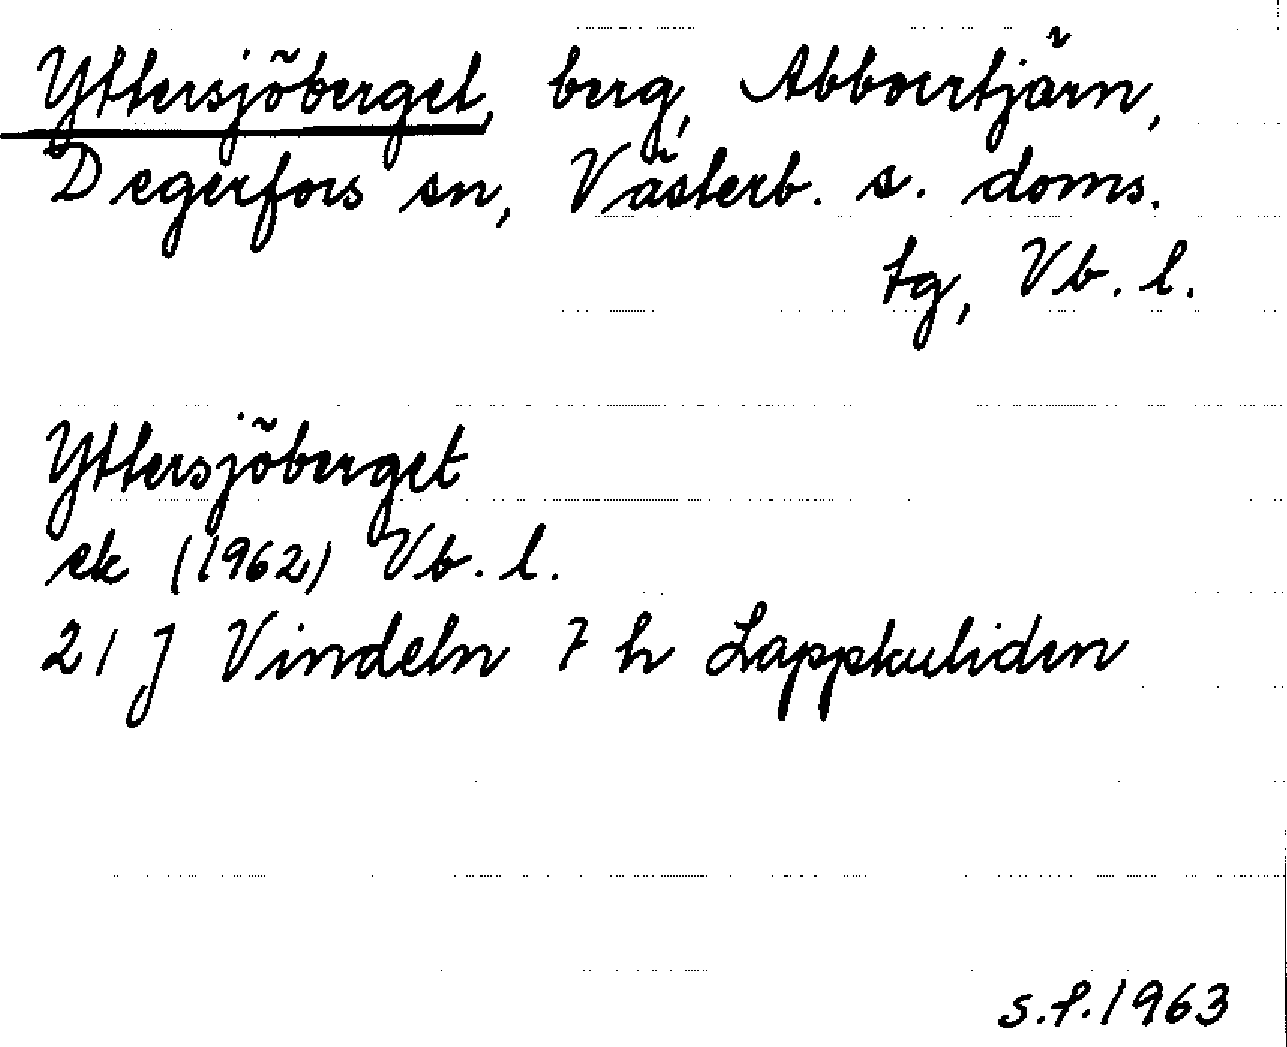 Yttersjöberget, berg, Abborrtjärn,
Degerfors sn, Västerb. s. doms.
tg, Vb. l.
Yttersjöberget
ek (1962) Vb. l.
21 J Vindeln 7 h Lappkuliden
s.f. 1963